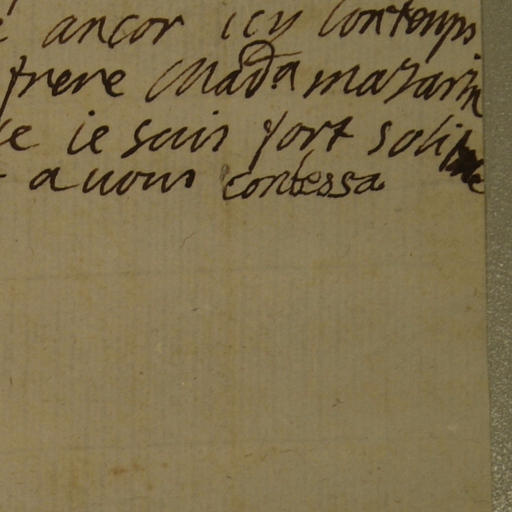 ancor icy lontemps
frere Mada mazarin
ie suis fort soli
a uous contessa